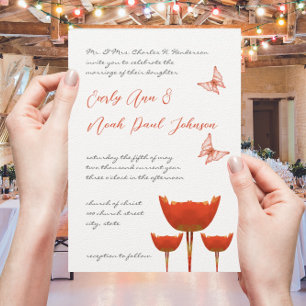 Mr. & Mrs. Charles H. Henderson
invite you to celebrate the
marriage of their daughter
Emily Ann &
Noah Paul Johnson
saturday the fifth of may
two thousand twenty four
three o'clock in the afternoon
church of christ
200 church street
city, state
reception to follow